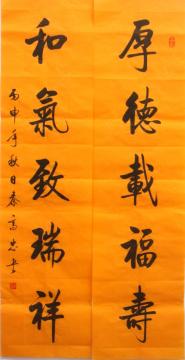 厚德載福壽
和氣致瑞祥
丙申年秋日泰高忠書